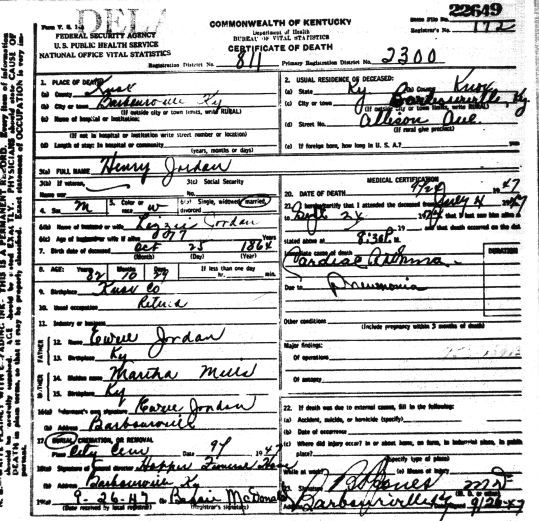 DEL
Form V. S. 1-A
FEDERAL SECURITY AGENCY
U. S. PUBLIC HEALTH SERVICE
NATIONAL OFFICE VITAL STATISTICS
COMMONWEALTH OF KENTUCKY
Department of Health
BUREAU OF VITAL STATISTICS
CERTIFICATE OF DEATH
State File No. 22649
Registrar's No. 172
Registration District No. 811 Primary Registration District No. 2300
1. PLACE OF DEATH
(a) County Knox
(b) City or town Barbourville Ky
(If outside city or town limits, write RURAL)
(c) Name of hospital or institution:
(If not in hospital or institution write street number or location)
(d) Length of stay: In hospital or community
(years, months or days)
2. USUAL RESIDENCE OF DECEASED:
(a) State Ky (b) County Knox
(c) City or town Barbourville Ky.
(If outside city or town limits, write RURAL)
(d) Street No. Allison Ave.
(If rural give precinct)
(e) If foreign born, how long in U. S. A.? years
3(a) FULL NAME Henry Jordan
3(b) If veteran, name war
3(c) Social Security No.
4. Sex M 5. Color or race W 6(a) Single, widowed, married, divorced
6(b) Name of husband or wife Lizzie Jordan
6(c) Age of husband or wife if alive 77 Years
7. Birth date of deceased Oct 25 1864
(Month) (Day) (Year)
8. AGE: Years 82 Months 10 Days 29 If less than one day hr. min.
9. Birthplace Knox Co
10. Usual occupation Retired
11. Industry or business
FATHER
12. Name Jordan
13. Birthplace Ky
MOTHER
14. Maiden name Martha Mills
15. Birthplace Ky
16(a) Informant's own signature Jordan
(b) Address Barbourville
17. BURIAL, CREMATION, OR REMOVAL
Place City Cem Date 9/ 1947
18(a) Signature of funeral director Hopper Funeral Home
(b) Address Barbourville Ky
19(a) 9-26-47 (b) McDonald
(Date received by local registrar) (Registrar's signature)
MEDICAL CERTIFICATION
20. DATE OF DEATH 9/24 1947
21. I hereby certify that I attended the deceased from July 4 1947
to Sept 24 1947 that I last saw him alive
on 19 and that death occurred on the date
stated above at 8:30 P. M.
Immediate cause of death
DURATION
Due to Pneumonia
Other conditions
(Include pregnancy within 3 months of death)
Major findings:
Of operations
Of autopsy
22. If death was due to external causes, fill in the following:
(a) Accident, suicide, or homicide (specify)
(b) Date of occurrence
(c) Where did injury occur? In or about home, on farm, in industrial place, in public place?
(Specify type of place)
While at work? (e) Means of injury
23. Signature Jones MD
(M. D. or other)
Address Barbourville Ky 9/26-47